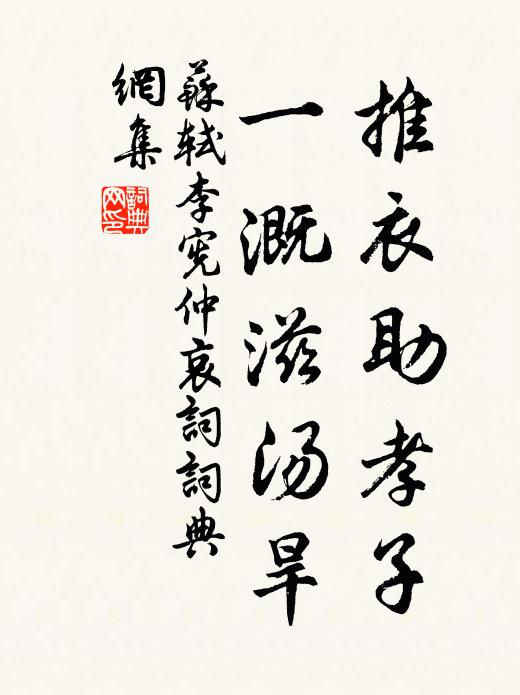 推衣助孝子
一溉滋汤旱
蘇軾李宪仲哀詞詞典
網集
詞典
网印